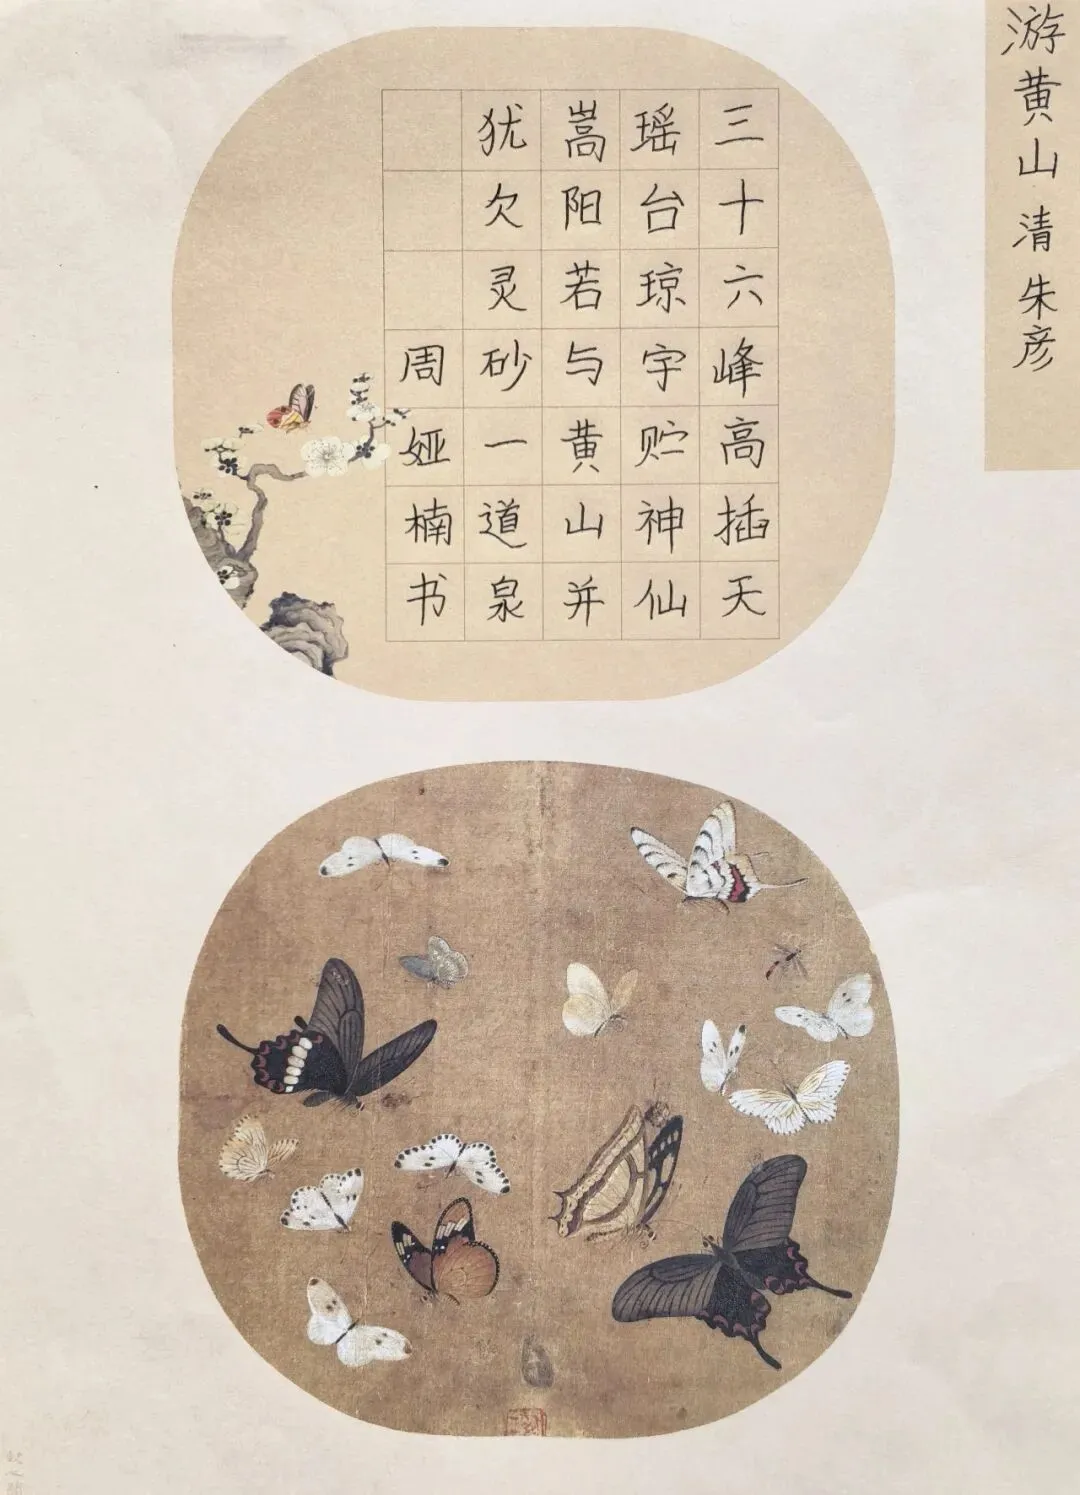 游黄山 清 朱彦
三十六峰高插天
瑶台琼宇贮神仙
嵩阳若与黄山并
犹欠灵砂一道泉
周娅楠书